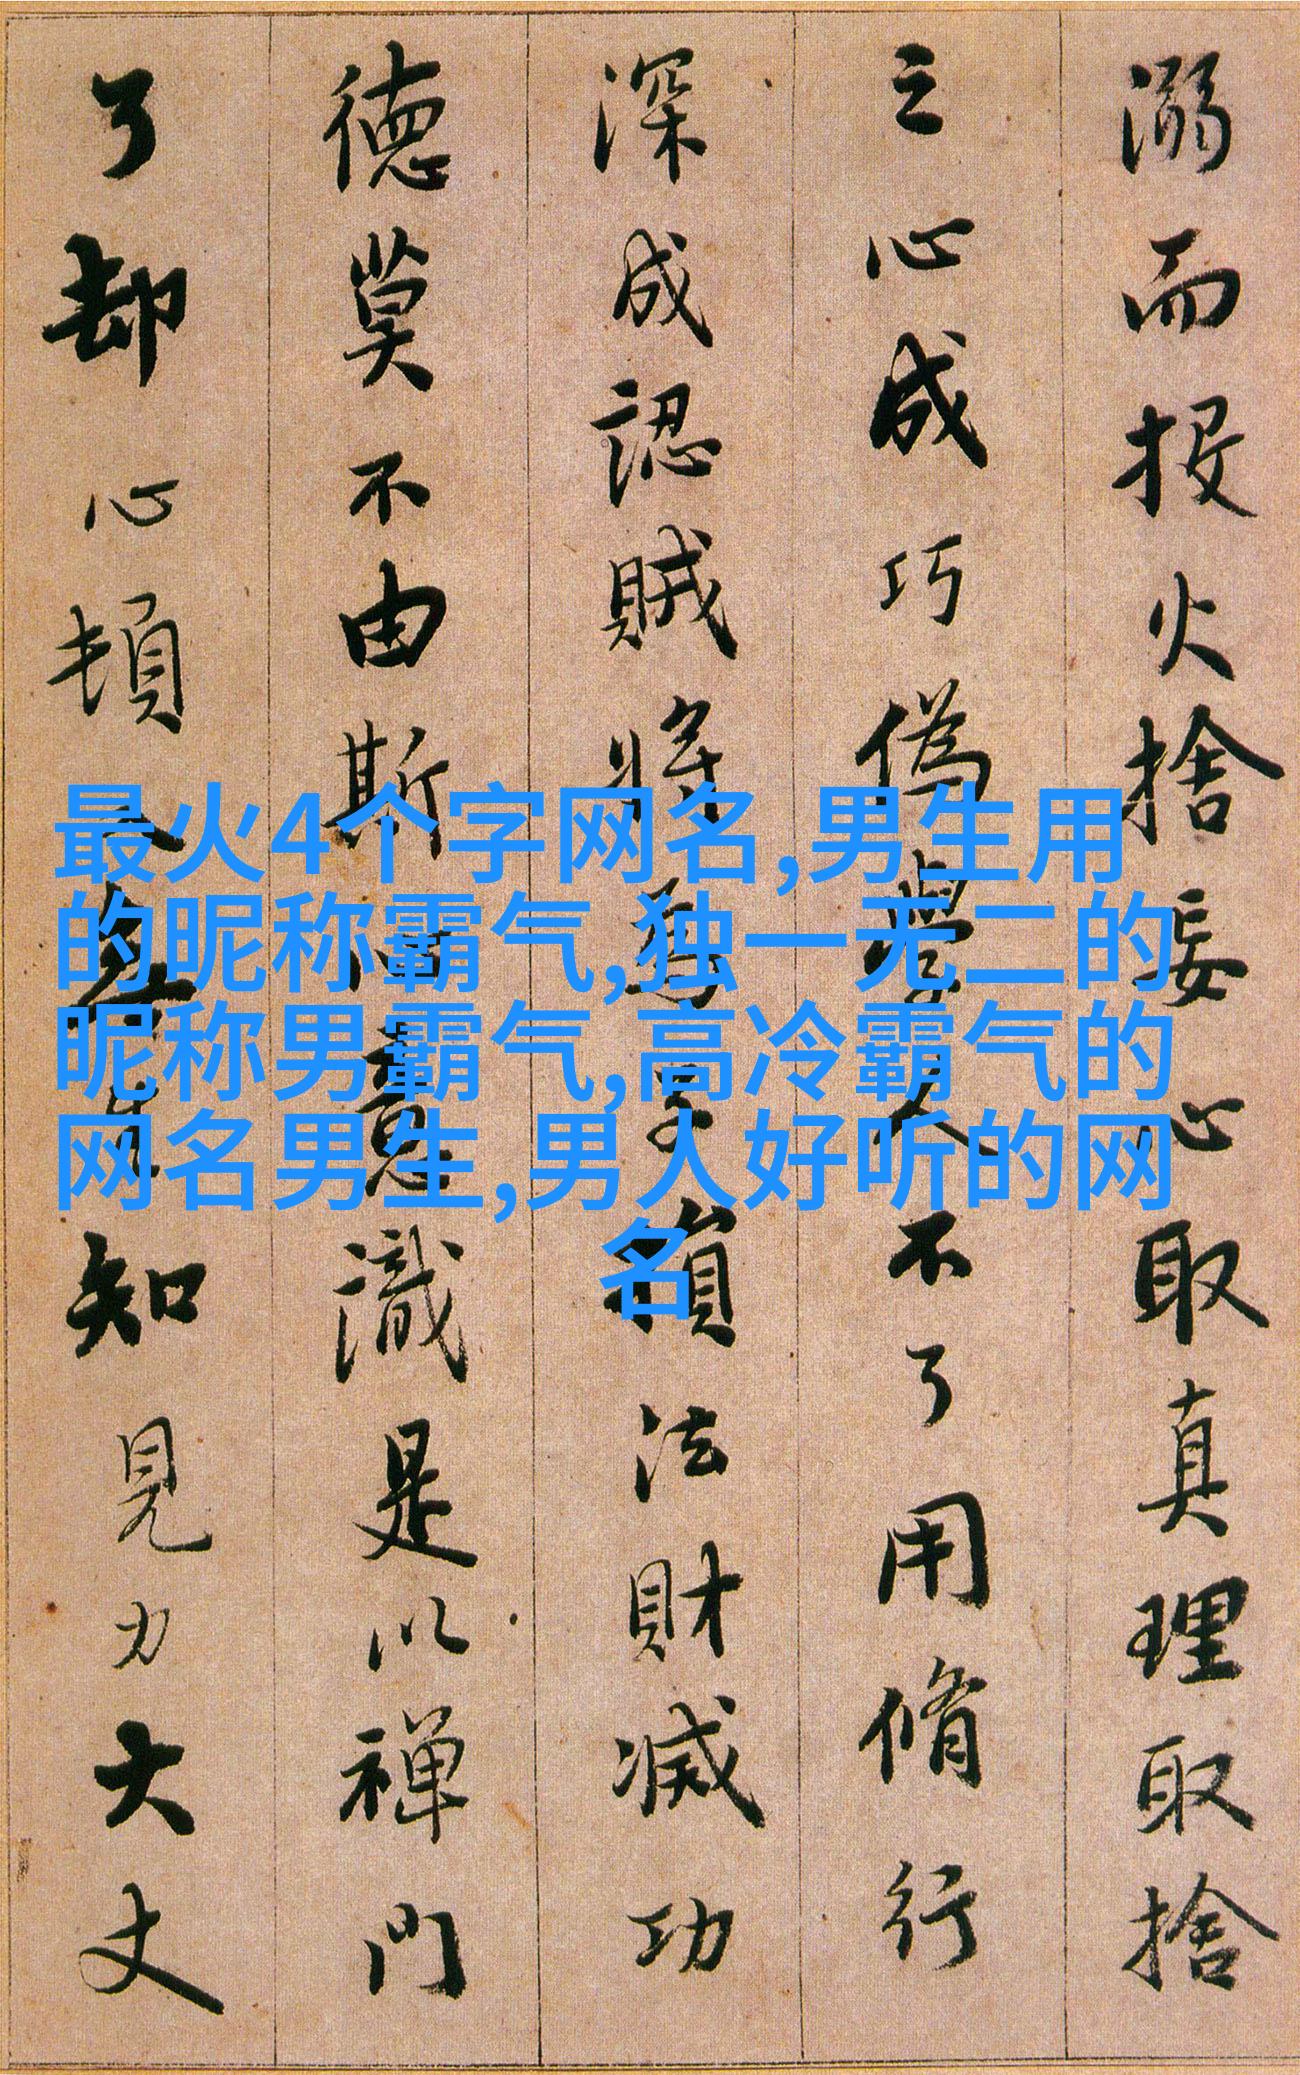 溺而投火捨妄心取真理取捨
之心成巧偽學人不了用脩行
深成認賊將為子損法財滅功
德莫不由斯心意識是以禪門
了却心頓入無生知見力大丈
最火4个字网名,男生用
的昵称霸气,独一无二的
昵称男霸气,高冷霸气的
网名男生,男人好听的网
名